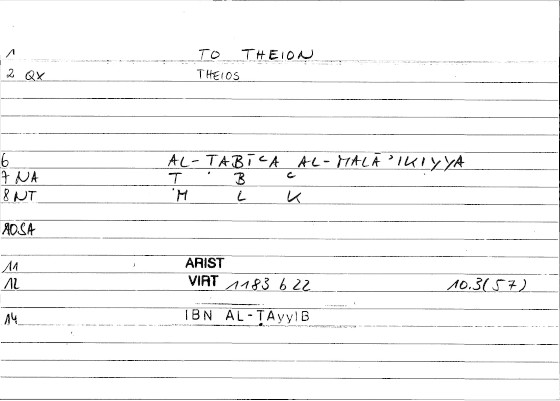 1 TO THEION
2 QX THEIOS
6 AL-ṬABĪʿA AL-MALĀʾIKIYYA
7 NA Ṭ B ʿ
8 NT M L K
10SA
11 ARIST
12 VIRT 1183 b 22 10.3(57)
14 IBN AL-ṬAyyIB